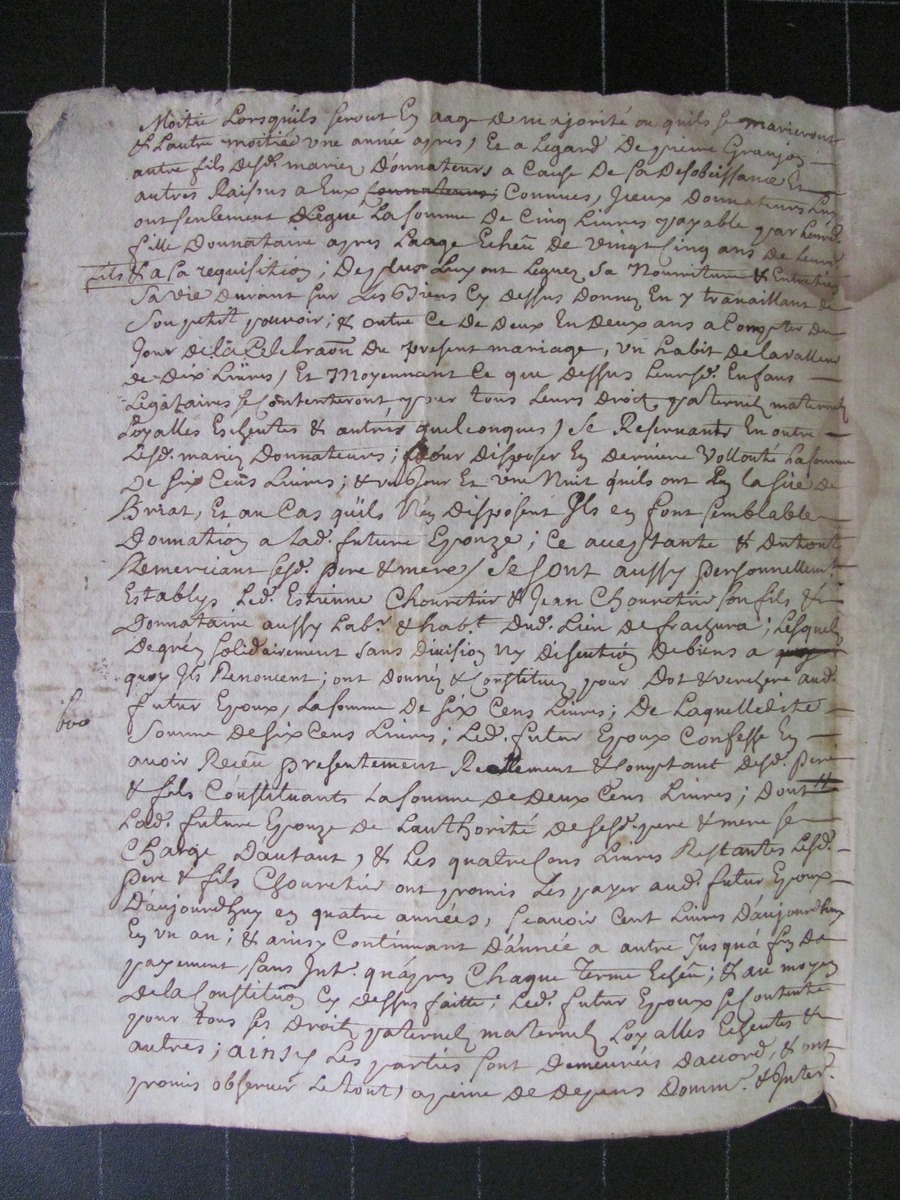 Moitié Lorsqu'ils seront En aage de majorité ou quils se marieront
& Lautre moitié vne année apres, Et a Legard De pierre Granjon
autre fils desd. mariez Donnateurs a Cause De sa Desobeissance Et
autres Raisons a Eux Connues, Iceux Donnateurs Luy
ont seulement Legué La somme De Cinq Livres payable par leurd.
fille Donnataire apres Laage Echeu De vingt Cinq ans de leurd.
fils & a sa requisition; De plus Luy ont Leguez sa Nourriture & Entretien
sa vie durant sur Les Biens Cy dessus Donnez En y travaillant de
son petit pouvoir; & outre Ce De Deux En Deux ans a Compter Du
Jour de la Celebraon Du present mariage, vn habit De la valleur
de Dix Livres, Et Moyennant Ce que Dessus Leursd. Enfans
Legataires se Contenteront pour tous Leurs Droit paternel maternel
Loyalles Echeutes & autres quelconques, Se Reservants En outre
Lesd. mariez Donnateurs; pour Disposer En Derniere Vollonté La somme
De Six Cens Livres; & vn Jour Et vne Nuit quils ont En la Sie de
Briat, Et au Cas quils N'en Disposent Ils en font semblable
Donnation a Lad. future Epouze; Ce acceptante & Du tout
Remerciant sesd. pere & mere, Se sont aussy personnellemt
Establys Led. Estienne Chouretier & Jean Chouretier son fils &
Donnataire aussy Labr. & habt. Dud. Lieu de ; Lesquels
De gré solidairement sans division Ny discution De biens a
quoy Ils Renoncent; ont Donnez & Constituez pour Dot & verchere aud.
600 futur Epoux, La somme De Six Cens Livres; De Laquelle dite
Somme de six Cens Livres; Led. futur Epoux Confesse En
avoir Receu presentement Reellement & Comptant desd. pere
& fils Constituants La somme De Deux Cens Livres; Dont
Lad. future Epouze De Lauthorité de sesd. pere & mere se
Charge Dautant, & Les quatre Cens Livres Restantes Lesd.
pere & fils Chouretier ont promis Les payer aud. futur Epoux
Daujourdhuy en quatre années, scavoir Cent Livres Daujourdhuy
En vn an; & ainsy Continuant Dannée a autre Jusqua fin De
payement, sans Intt. quapres Chaque Terme Echeu; & au moyen
De la Constituon Cy dessus faitte; Led. futur Epoux se Contente
pour tous ses Droit paternel maternel Loyalles Echeutes &
autres; ainsy Les parties sont Demeurées Daccord, & ont
promis observer Le tout, a peine de depens Domm. & Inter.